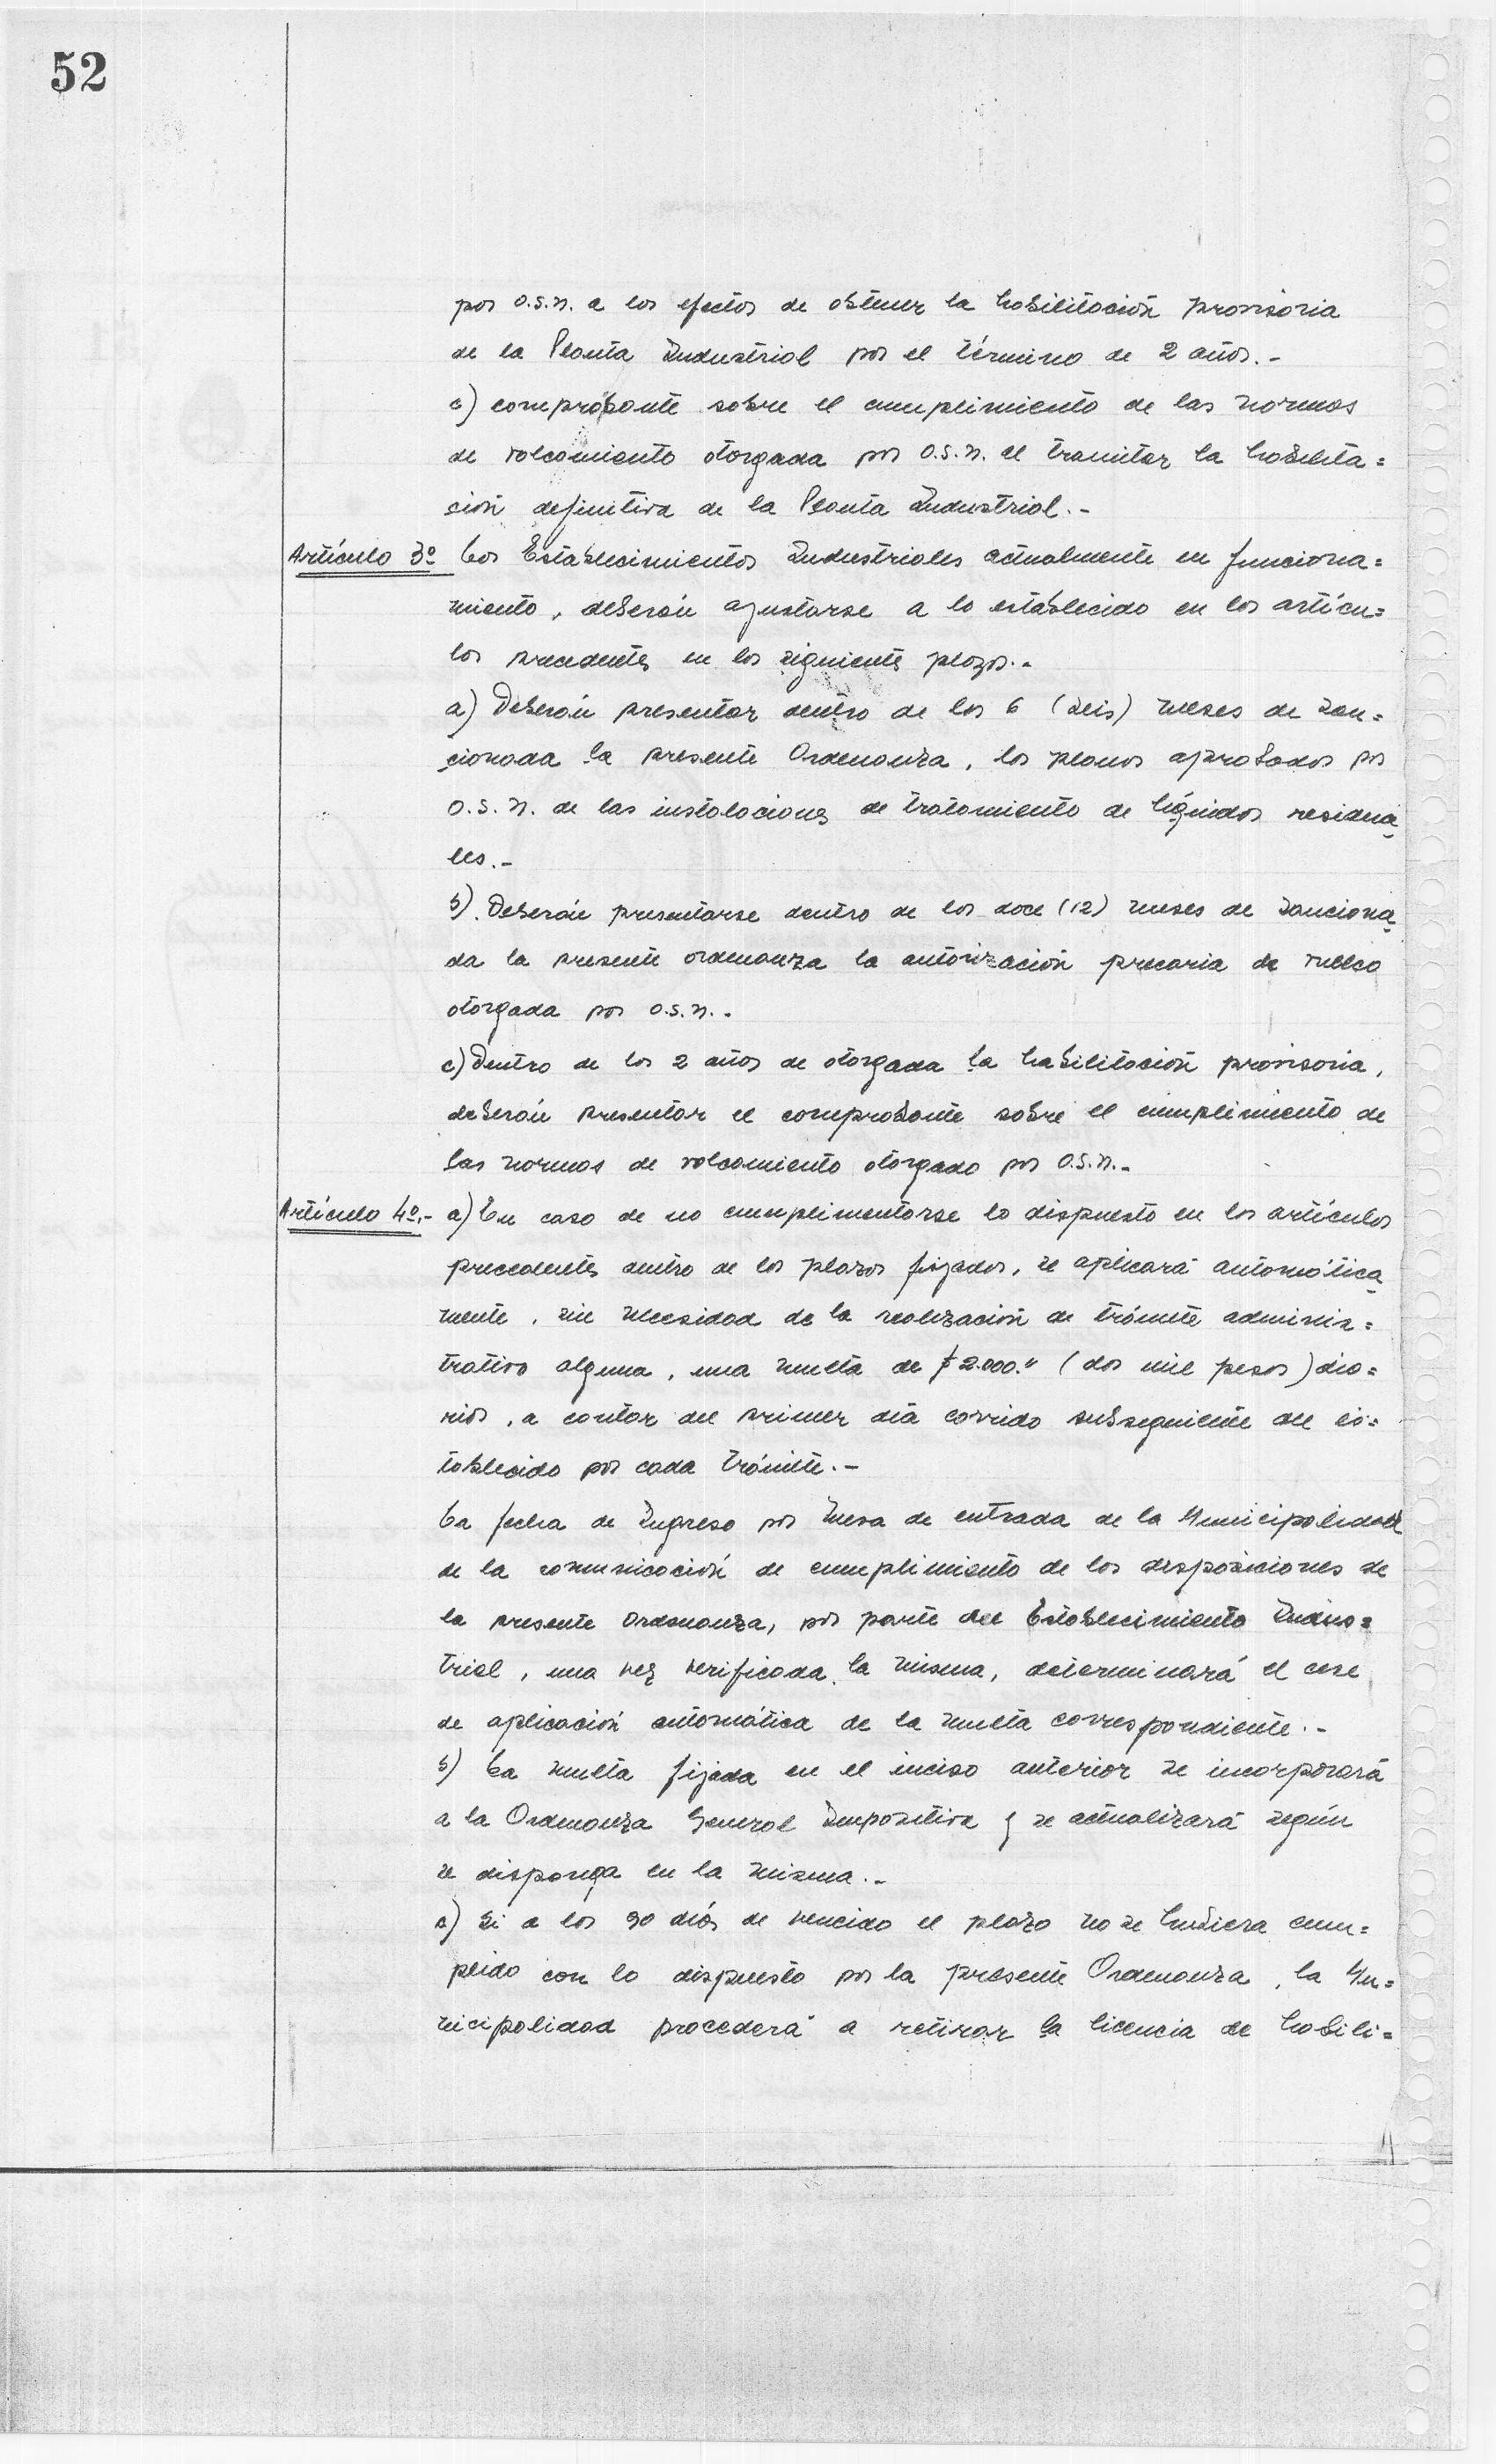 52
por O.S.N. a los efectos de obtener la habilitación provisoria
de la Planta Industrial por el término de 2 años.-
c) comprobante sobre el cumplimiento de las normas
de volcamiento otorgada por O.S.N. al tramitar la habilita=
ción definitiva de la Planta Industrial.-
Artículo 3º Los Establecimientos Industriales actualmente en funciona=
miento, deberán ajustarse a lo establecido en los artícu=
los precedentes en los siguientes plazos.-
a) Deberán presentar dentro de los 6 (seis) meses de san=
cionada la presente Ordenanza, los planos aprobados por
O.S.N. de las instalaciones de tratamiento de líquidos residua
les.-
b) Deberán presentarse dentro de los doce (12) meses de sanciona
da la presente ordenanza la autorización precaria de vuelco
otorgada por O.S.N.-
c) Dentro de los 2 años de otorgada la habilitación provisoria,
deberán presentar el comprobante sobre el cumplimiento de
las normas de volcamiento otorgado por O.S.N.-
Artículo 4º.- a) En caso de no cumplimentarse lo dispuesto en los artículos
precedentes dentro de los plazos fijados, se aplicará automática
mente, sin necesidad de la realización de trámite adminis=
trativo alguna, una multa de $2.000.- (dos mil pesos) dia=
rios, a contar del primer día corrido subsiguiente del es=
tablecido por cada trámite.-
La fecha de Ingreso por Mesa de entrada de la Municipalidad
de la comunicación de cumplimiento de los disposiciones de
la presente ordenanza, por parte del Establecimiento Indus=
trial, una vez verificada la misma, determinará el cese
de aplicación automática de la multa correspondiente.-
b) La multa fijada en el inciso anterior se incorporará
a la Ordenanza General Impositiva y se actualizará según
se disponga en la misma.-
c) Si a los 90 días de vencido el plazo no se hubiera cum=
plido con lo dispuesto por la presente Ordenanza, la Mu=
nicipalidad procederá a retirar la licencia de habili=